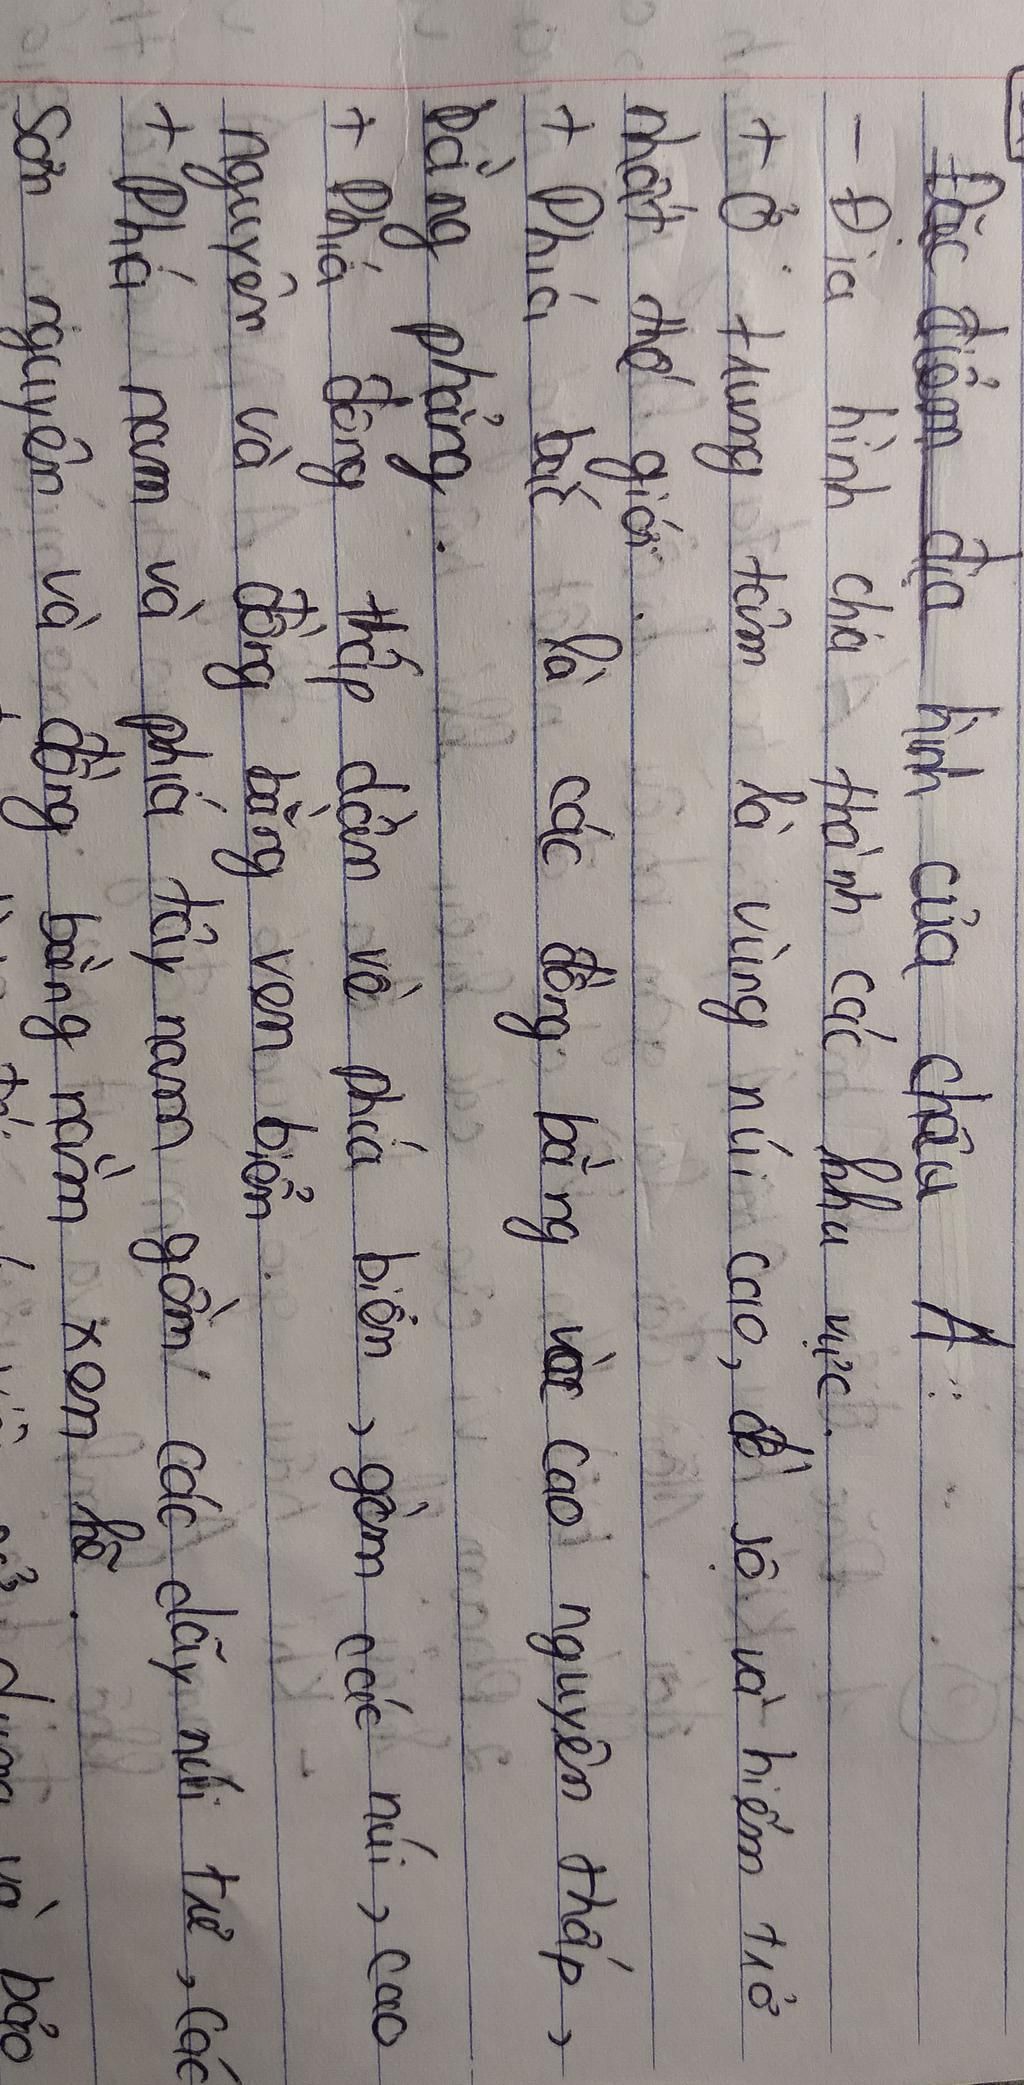 Đặc điểm địa hình của châu Á:
- Địa hình chia thành các khu vực.
+ Ở trung tâm là vùng núi cao, đồ sộ và hiểm trở
nhất thế giới.
+ Phía bắc là các đồng bằng và cao nguyên thấp,
bằng phẳng.
+ Phía đông thấp dần về phía biển, gồm các núi, cao
nguyên và đồng bằng ven biển.
+ Phá nam và phía tây nam gồm các dãy núi trẻ, các
Sơn nguyên và đồng bằng nằm xen kẽ.
và bảo